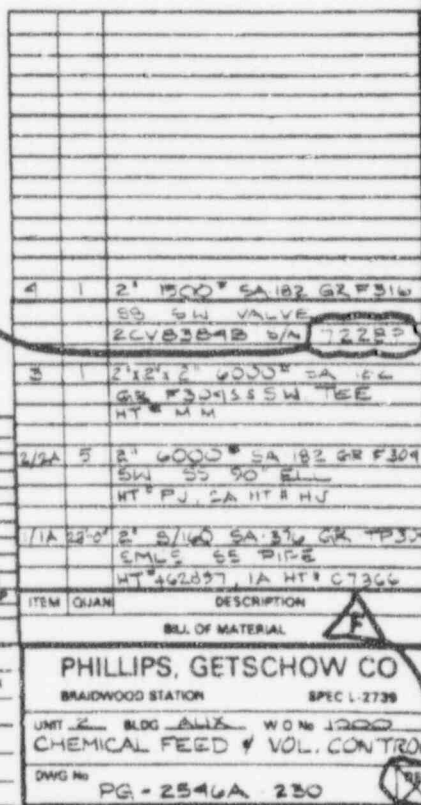 4 1 2" 1500# SA 182 GR F316
SS SW VALVE
2CV8384B S/N
3 1 2"x2"x2" 6000# SA
GR F304 SS SW TEE
HT # MM
2/2A 5 2" 6000# SA 182 GR F304
SW SS 90° ELL
HT # PJ, 2A HT # HJ
1/1A 22'-0" 2" S/160 SA-376 GR
SMLS SS PIPE
HT #462897, 1A HT # C7366
ITEM QUAN DESCRIPTION
BILL OF MATERIAL F
PHILLIPS, GETSCHOW CO
BRAIDWOOD STATION SPEC L-2739
UNIT 2 BLDG AUX W O No 1200
CHEMICAL FEED & VOL. CONTRO
DWG No PG-2546A 230